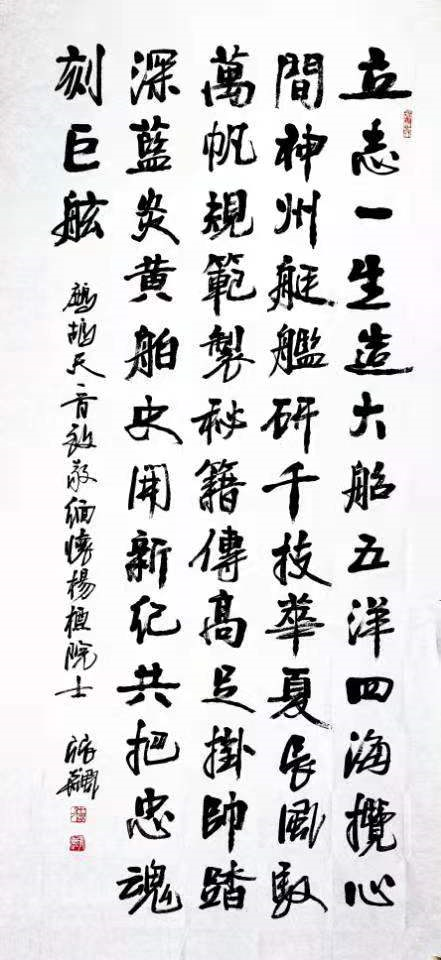 立志一生造大船五洋四海攬心
間神州艇艦研千技華夏長風馭
萬帆規範製秘籍傳高足掛帥踏
深藍炎黄舶史開新紀共把忠魂
刻巨舷
鷓鴣天音致敬緬懷楊槱院士